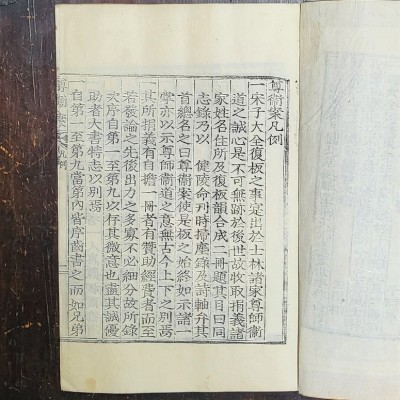 尊衛案凡例
一宋子大全復板之事定出於士林諸家尊師衛
道之誠心是不可無跡於後世故收取捐義諸
家姓名住所及復板韻合成二冊題其目曰同
志錄乃以 健陵命刊時掃塵錄及詩軸弁其
首總名之曰尊衛案使是板之始終如示諸一
掌亦以示尊師衛道之意無古今上下之別焉
一其所捐義有自擔一冊者有贊助經費者而至
若發論之先後出力之多寡不必細分故所錄
次序自第一至第九以存其微意也盡其誠優
助者大書特志以別焉
一自第一至第九當第內皆序齒書之而如兄弟
尊衛案 凡例